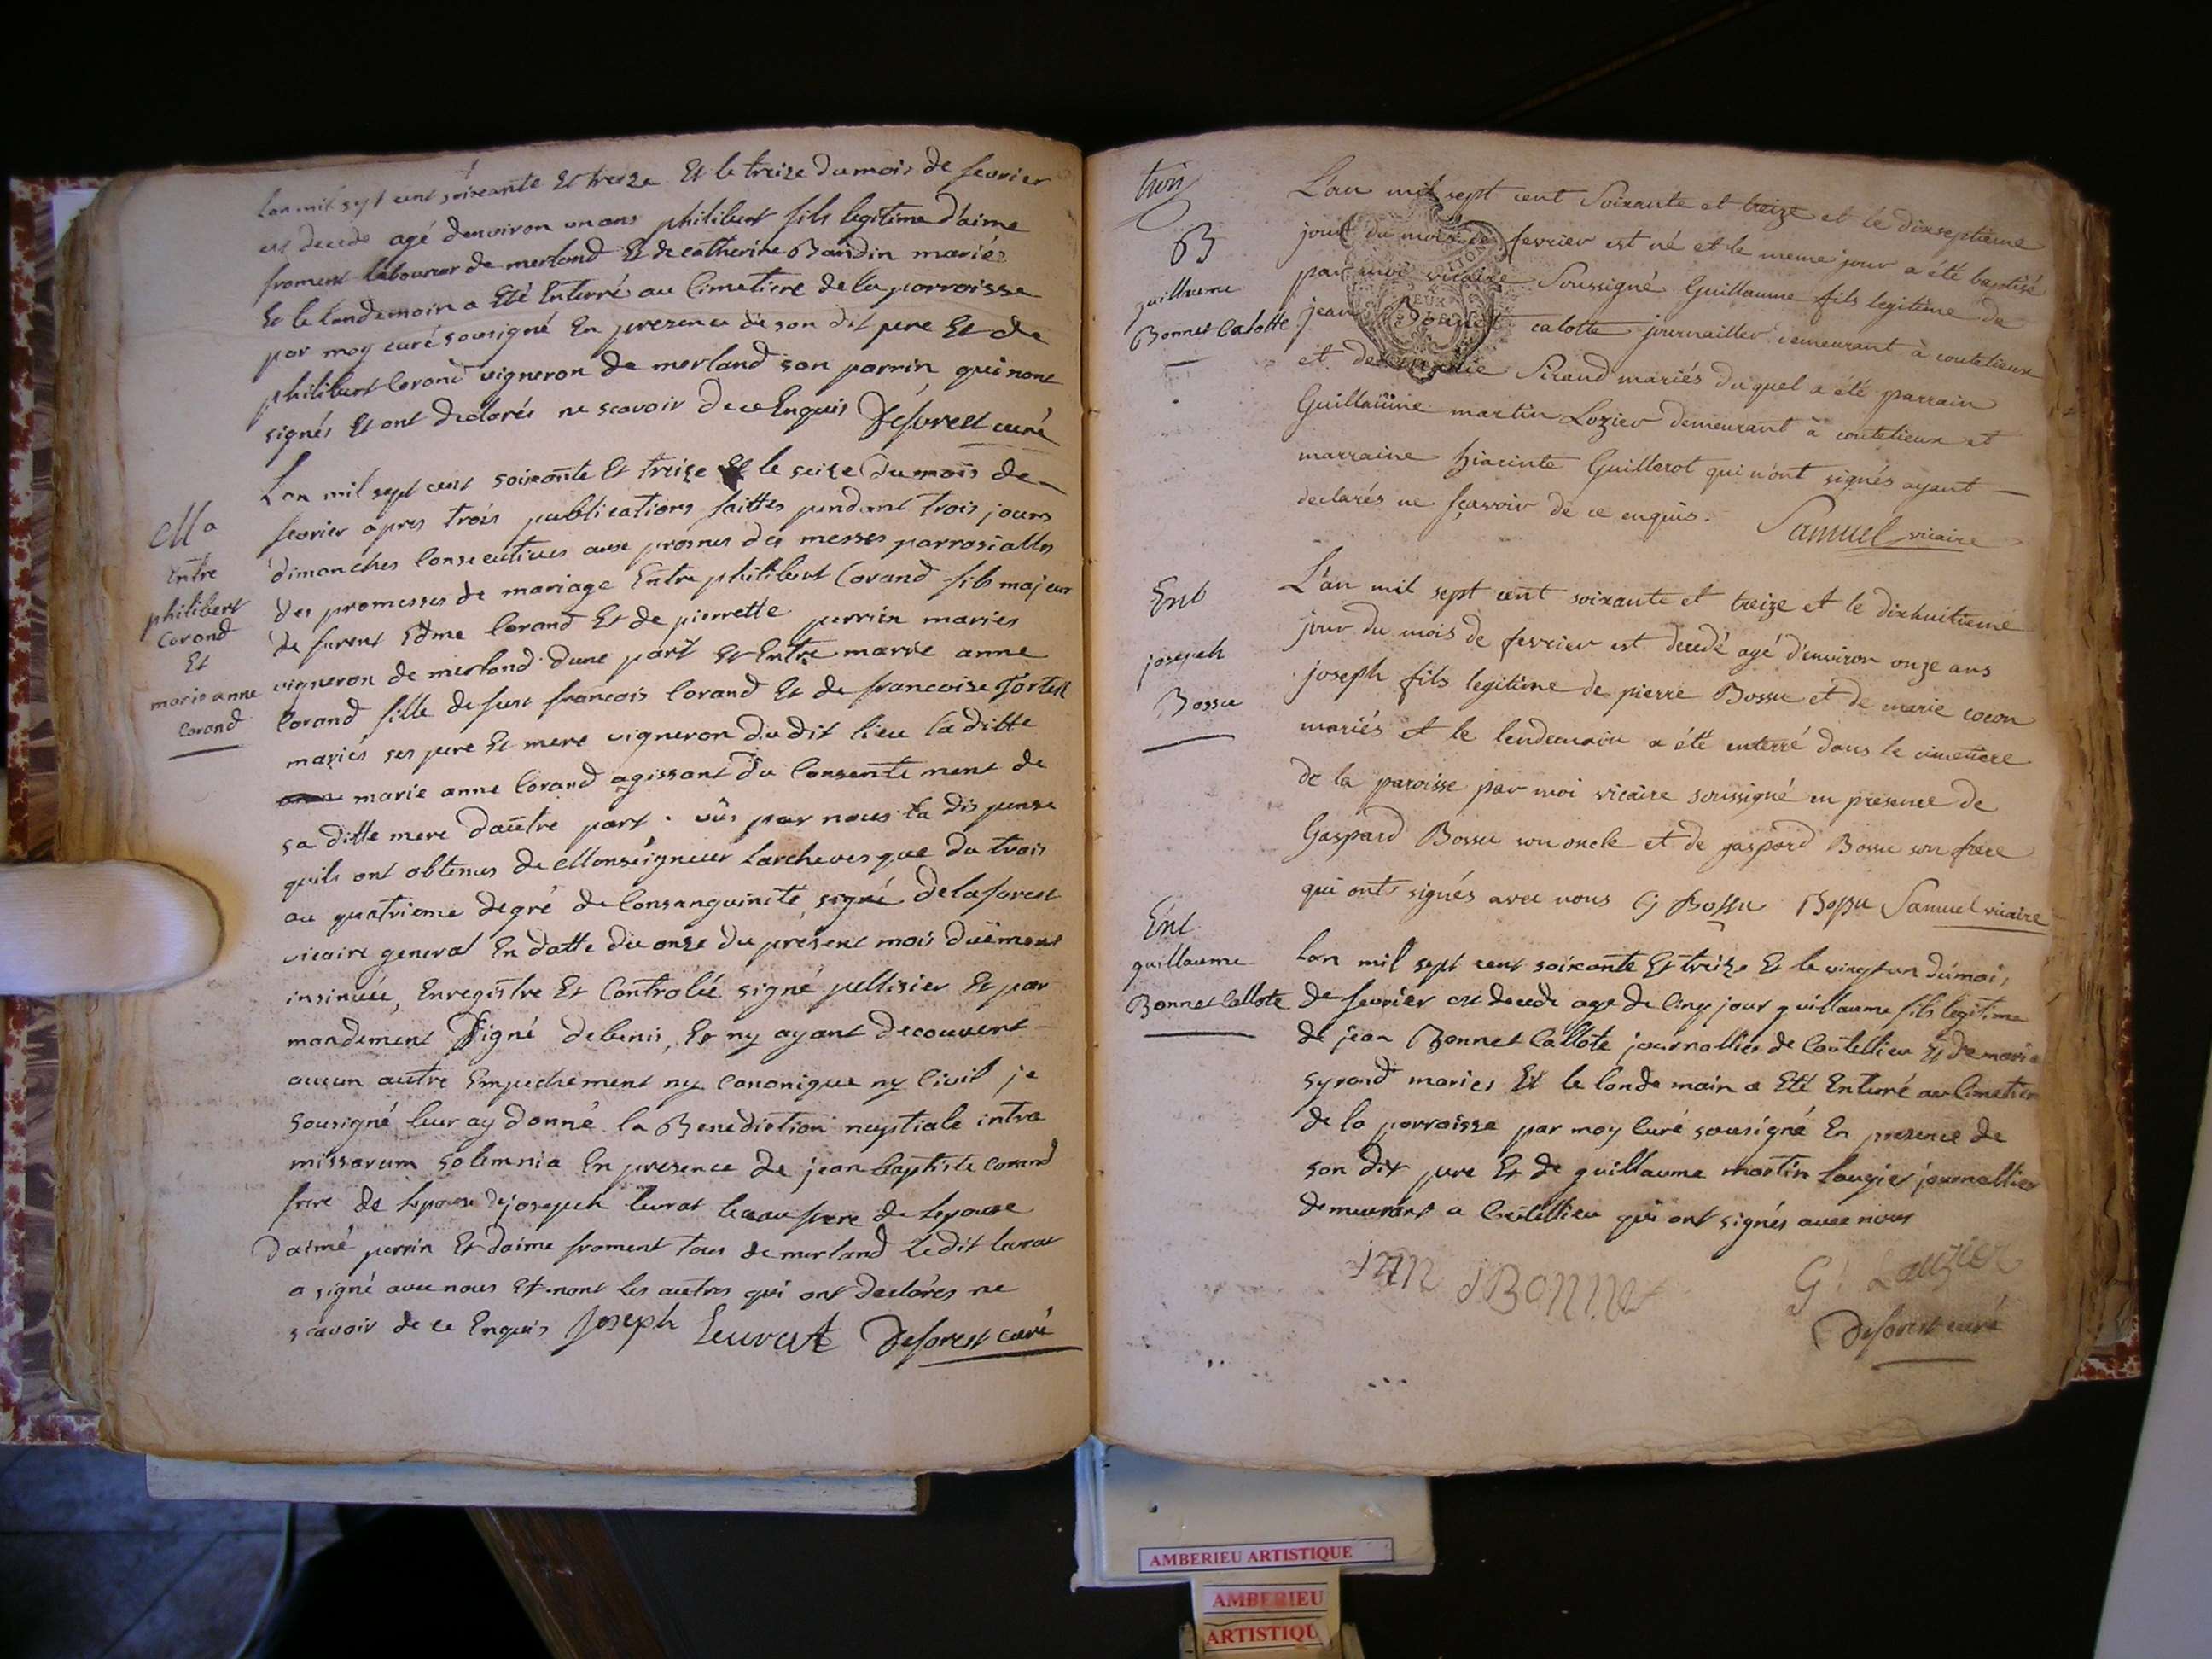 Lan mil sept cent soixante Et treize Et le treize du mois de fevrier
est decedé agé denviron un ans philibert fils legitime d'aimé
froment laboureur de merland Et de catherine Baudin mariés
Et le landemain a Eté Enterré au Cimetiere de la parroisse
par moy curé sousigné En presence de son dit pere Et de
philibert Corand vigneron de merland son parrin qui nont
signés Et ont declarés ne scavoir de ce Enquis Deforest curé
Ma
Entre
philibert
Corand
Et
marie anne
Corand
Lan mil sept cent soixante Et treize Et le seize du mois de
fevrier apres trois publications faittes pendant trois jours
dimanches Consecutives aux prosnes des messes parrosialles
des promesses de mariage Entre philibert Corand fils majeur
de furent Edme Corand Et de pierrette perrin mariés
vigneron de merland dune part Et Entre marie anne
Corand fille de fut francois Corand Et de francoise
mariés ses pere Et mere vigneron du dit lieu la ditte
marie anne Corand agissant du Consentement de
sa ditte mere dautre part. vûs par nous la dispense
quils ont obtenus de Monseigneur Larchevesque du trois
au quatrieme degré de Consanguinité, signé delaforest
vicaire general En datte du onze du present mois duëment
insinuée, Enregistre Et Controlée signé pellisier Et par
mandement signé debenis, Et ny ayant decouvert
aucun autre Empechement ny Canonique ny Civil je
sousigné leur ay donné la Benediction nuptiale intra
missarum solemnia En presence de jean baptiste Corand
frere de lepouse de joseph leurat beaufrere de lepouse
daimé perrin Et daime froment tous de merland le dit leurat
a signé avec nous Et nont les autres qui ont declarés ne
scavoir de ce Enquis Joseph Leurat Deforest curé
trois
B
guillaume
Bonnet Calotte
L'an mil sept cent Soixante et treize et le dixseptieme
jour du mois de fevrier est né et le meme jour a été baptisé
par moi vicaire Soussigné Guillaume fils legitime de
jean Bonnet calotte journallier demeurant à coutelieux
et de marie Sirand mariés duquel a été parrain
Guillaüme martin Lozier demeurant à coutelieux et
marraine hiacinte Guillerot qui n'ont signés ayant
declarés ne sçavoir de ce enquis. Samuel vicaire
Ent
joseph
Bossu
L'an mil sept cent soixante et treize et le dixhuitieme
jour du mois de fevrier est decedé agé d'environ onze ans
joseph fils legitime de pierre Bossu et de marie cocon
mariés et le lendemain a été enterré dans le cimetiere
de la paroisse par moi vicaire soussigné en presence de
Gaspard Bossu son oncle et de gaspard Bossu son frere
qui ont signés avec nous G Bossu Bossu Samuel vicaire
Ent
guillaume
Bonnet Callote
Lan mil sept cent soixante Et treize Et le vingt un du mois
de fevrier est decede age de Cinq jour guillaume fils legitime
de jean Bonnet Callote journallier de Coutellieu Et de marie
syrand mariés Et le landemain a Eté Enterré au Cimetier
de la parroisse par moy Curé sousigné En presence de
son dit pere Et de guillaume martin laugier journallier
demeurant a Coutellieu qui ont signés avec nous
G Lauzier
Deforest curé
AMBERIEU ARTISTIQUE
AMBERIEU
ARTISTIQU